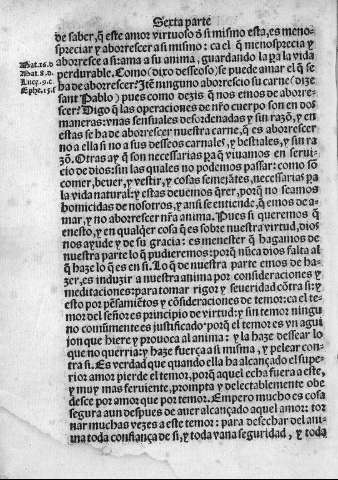 Sexta parte
de saber, q̃ este amor virtuoso d̃ si mismo esta, es meno-
spreciar y aborrescer a si mismo: ca el q̃ menosprecia y
Mat.16.d aborresce a si: ama a su anima, guardando la pa la vida
Mat.8.d. perdurable. Como (dixo desseoso) se puede amar el q̃ se
Luce.9.c. ha de aborrescer? Itẽ ninguno aborrescio su carne (dize
Ephe.15.f sant Pablo) pues como dezis q̃ nos emos de aborre-
scer? Digo q̃ las operaciones de nr̃o cuerpo son en dos
maneras: vnas sensuales desordenadas y sin razõ, y en
estas se ha de aborrescer nuestra carne, q̃ es aborrescer
no a ella si no a sus desseos carnales, y bestiales, y sin ra
zõ. Otras ay q̃ son necessarias pa q̃ viuamos en serui-
cio de dios: sin las quales no podemos passar: como sõ
comer, beuer, y vestir, y cosas semejãtes, necessarias pa
la vida natural: y estas deuemos q̃rer, porq̃ no seamos
homicidas de nosotros, y ansi se entiende, q̃ emos de a-
mar, y no aborrescer nr̃a anima. Pues si queremos q̃
enesto, y en qualq̃er cosa q̃ es sobre nuestra virtud, dios
nos ayude y de su gracia: es menester q̃ hagamos de
nuestra parte lo q̃ pudieremos: porq̃ nũca dios falta al
q̃ haze lo q̃ es en si. Lo q̃ de nuestra parte emos de ha-
zer, es induzir a nuestra anima por consideraciones y
meditaciones: para tomar rigor y seueridad cõtra si: y
esto por pẽsamiẽtos y cõsideraciones de temor: ca el te-
mor del señor es principio de virtud: y sin temor ningu
no comũmente es justificado: porq̃ el temor es vn agui
jon que hiere y prouoca al anima: y la haze dessear lo
que no querria: y haze fuerça a si misma, y pelear con-
tra si. Es verdad que quando ella ha alcançado el supe-
rior amor pierde el temor, porq̃ aquel echa fuera a este,
y muy mas feruiente, prompta y delectablemente obe
desce por amor que por temor. Empero mucho es cosa
segura aun despues de auer alcançado aquel amor: tor
nar muchas vezes a este temor: para desechar del ani-
ma toda confiança de si, y toda vana seguridad, y toda